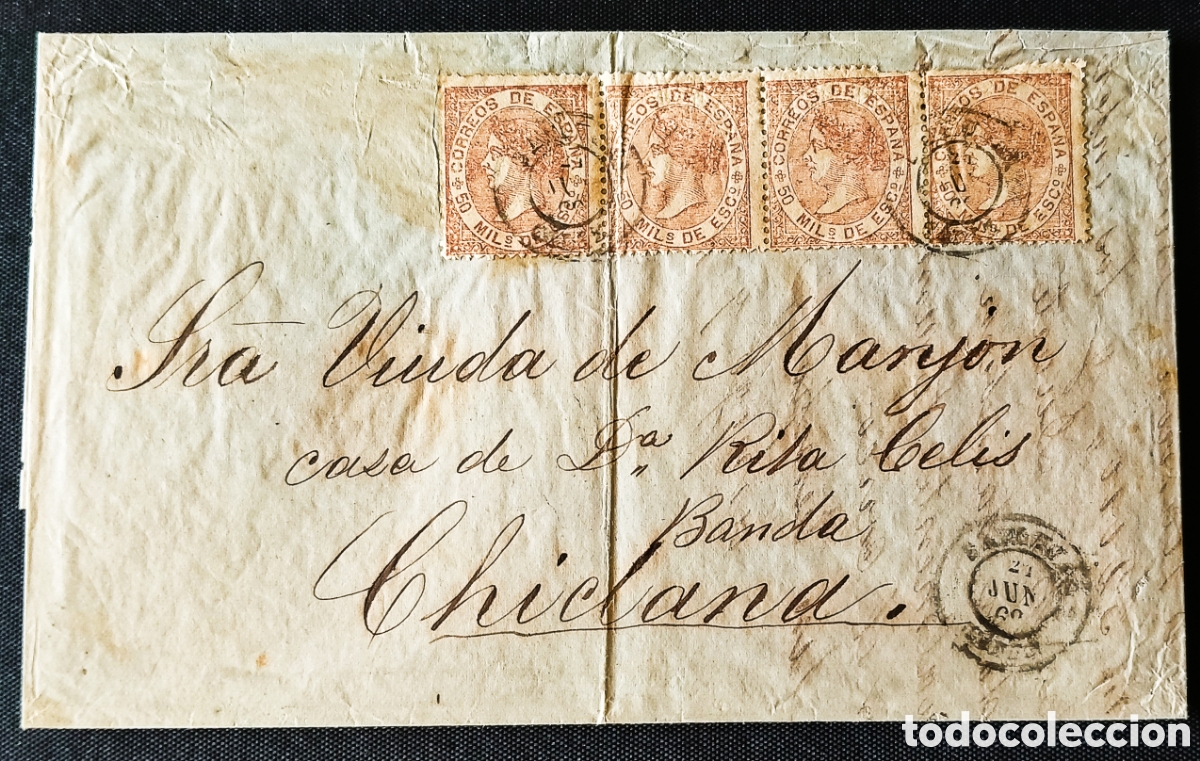 CORREOS DE ESPAÑA
50 MILS DE
CORREOS DE ESPAÑA
50 MILS DE ESCO
CORREOS DE ESPAÑA
50 MILS DE ESCO
DE ESPAÑA
DE ESCO
Sra Viuda de Manjón
casa de Da Rita Celis
Banda
Chiclana.
21
JUN
todocoleccion